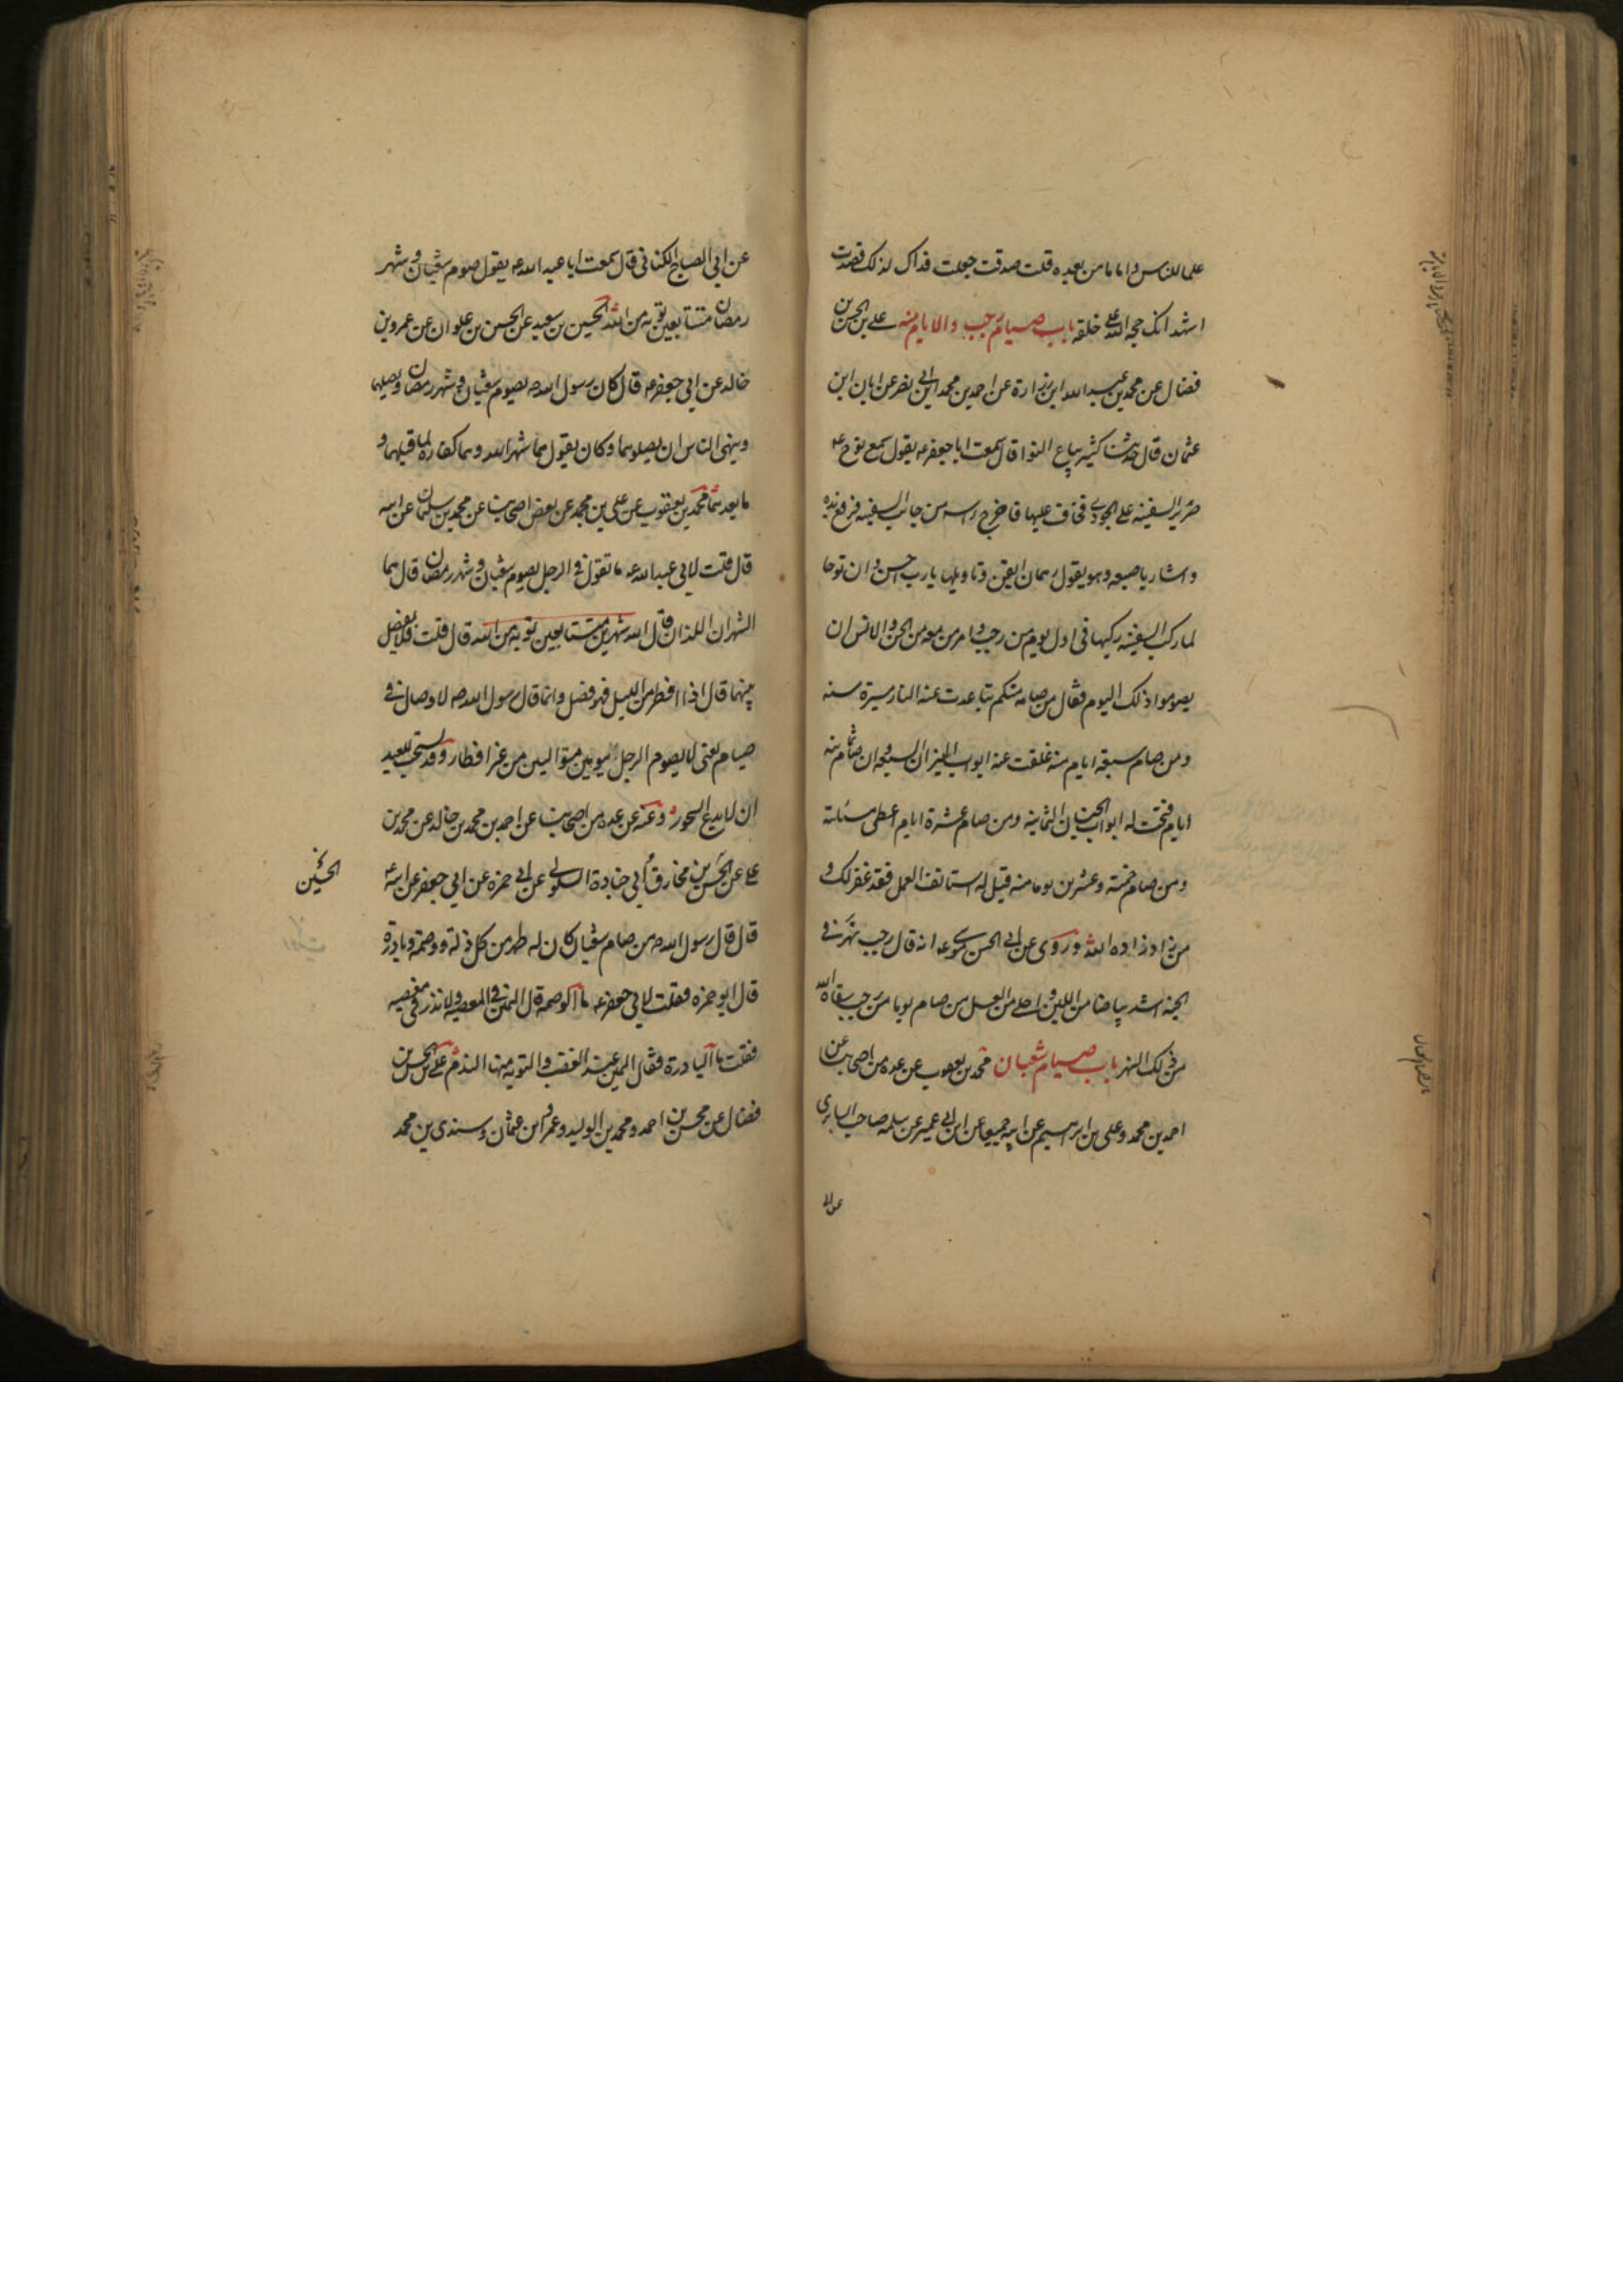 علما للناس واماما من بعده قلت صدقت جعلت فداك لذلك قصدت
اشهد انك حجة الله على خلقه باب صيام رجب والايام منه على بن الحسن بن
فضال عن محمد بن عبد الله ابن زرارة عن احمد بن محمد ابن ابى نصر عن ابان ابن
عثمان قال حدثنا كثير بياع النوا قال سمعت ابا جعفر ع يقول سمع نوح ع
صرير السفينه على الجودى فخاف عليها فاخرج راسه من جانب السفينه فرفع يده
واشار باصبعه وهو يقول رهمان اتقن وتاويلها يا رب احسن وان نوحا
لما ركب السفينه ركبها فى اول يوم من رجب وامر من معه من الجن والانس ان
يصوموا ذلك اليوم فقال من صامه منكم تباعدت عنه النار مسيرة سنه
ومن صام سبعة ايام منه غلقت عنه ابواب النيران السبعه وان صام ثمانية
ايام فتحت له ابواب الجنان الثمانيه ومن صام عشرة ايام اعطى مسئلته
ومن صام خمسة وعشرين يوما منه قيل له استانف العمل فقد غفر لك و
من زاد زاده الله وروى عن ابى الحسن موسى ع انه قال رجب نهر فى
الجنه اشد بياضا من اللبن واحلى من العسل من صام يوما من رجب سقاه الله
من ذلك النهر باب صيام شعبان محمد بن يعقوب عن عده من اصحابنا عن
احمد بن محمد وعلى بن ابرهيم عن ابيه جميعا عن ابن ابى عمير عن سلمه صاحب السابرى
عن ابى
عن ابى الصباح الكنانى قال سمعت ابا عبد الله ع يقول صوم شعبان وشهر
رمضان متتابعين توبه من الله الحسين بن سعيد عن الحسن بن علوان عن عمرو بن
خالد عن ابى جعفر ع قال كان رسول الله ص يصوم شعبان وشهر رمضان ويصلهما
وينهى الناس ان يصلوهما وكان يقول هما شهر الله وهما كفارة لما قبلهما و
ما بعدهما محمد بن يعقوب عن على بن محمد عن بعض اصحابنا عن محمد بن سليمان عن ابيه
قال قلت لابى عبد الله ع ما تقول فى الرجل يصوم شعبان وشهر رمضان قال هما
الشهران اللذان قال الله شهرين متتابعين توبة من الله قال قلت فلا يفصل
بينهما قال اذا افطر من الليل فهو فصل وانما قال رسول الله ص لا وصال فى
صيام يعنى لا يصوم الرجل يومين متواليين من غير افطار وقد يستحب للعبد
ان لا يدع السحور وعنه عن عده من اصحابنا عن احمد بن محمد بن خالد عن محمد بن
على عن الحسن بن مخارق ابى جنادة السلولى عن ابى حمزه عن ابى جعفر عن ابيه ع
الحسين
قال قال رسول الله ص من صام شعبان كان له طهر من كل زلة ووصمة وبادرة
قال ابو حمزه فقلت لابى جعفر ع ما الوصمة قال اليمين فى المعصيه ولا نذر فى معصيه
فقلت ما البادرة فقال اليمين عند الغضب والتوبه منها الندم على بن الحسن بن
فضال عن محسن بن احمد ومحمد بن الوليد وعمرو ابن عثمان وسندى بن محمد